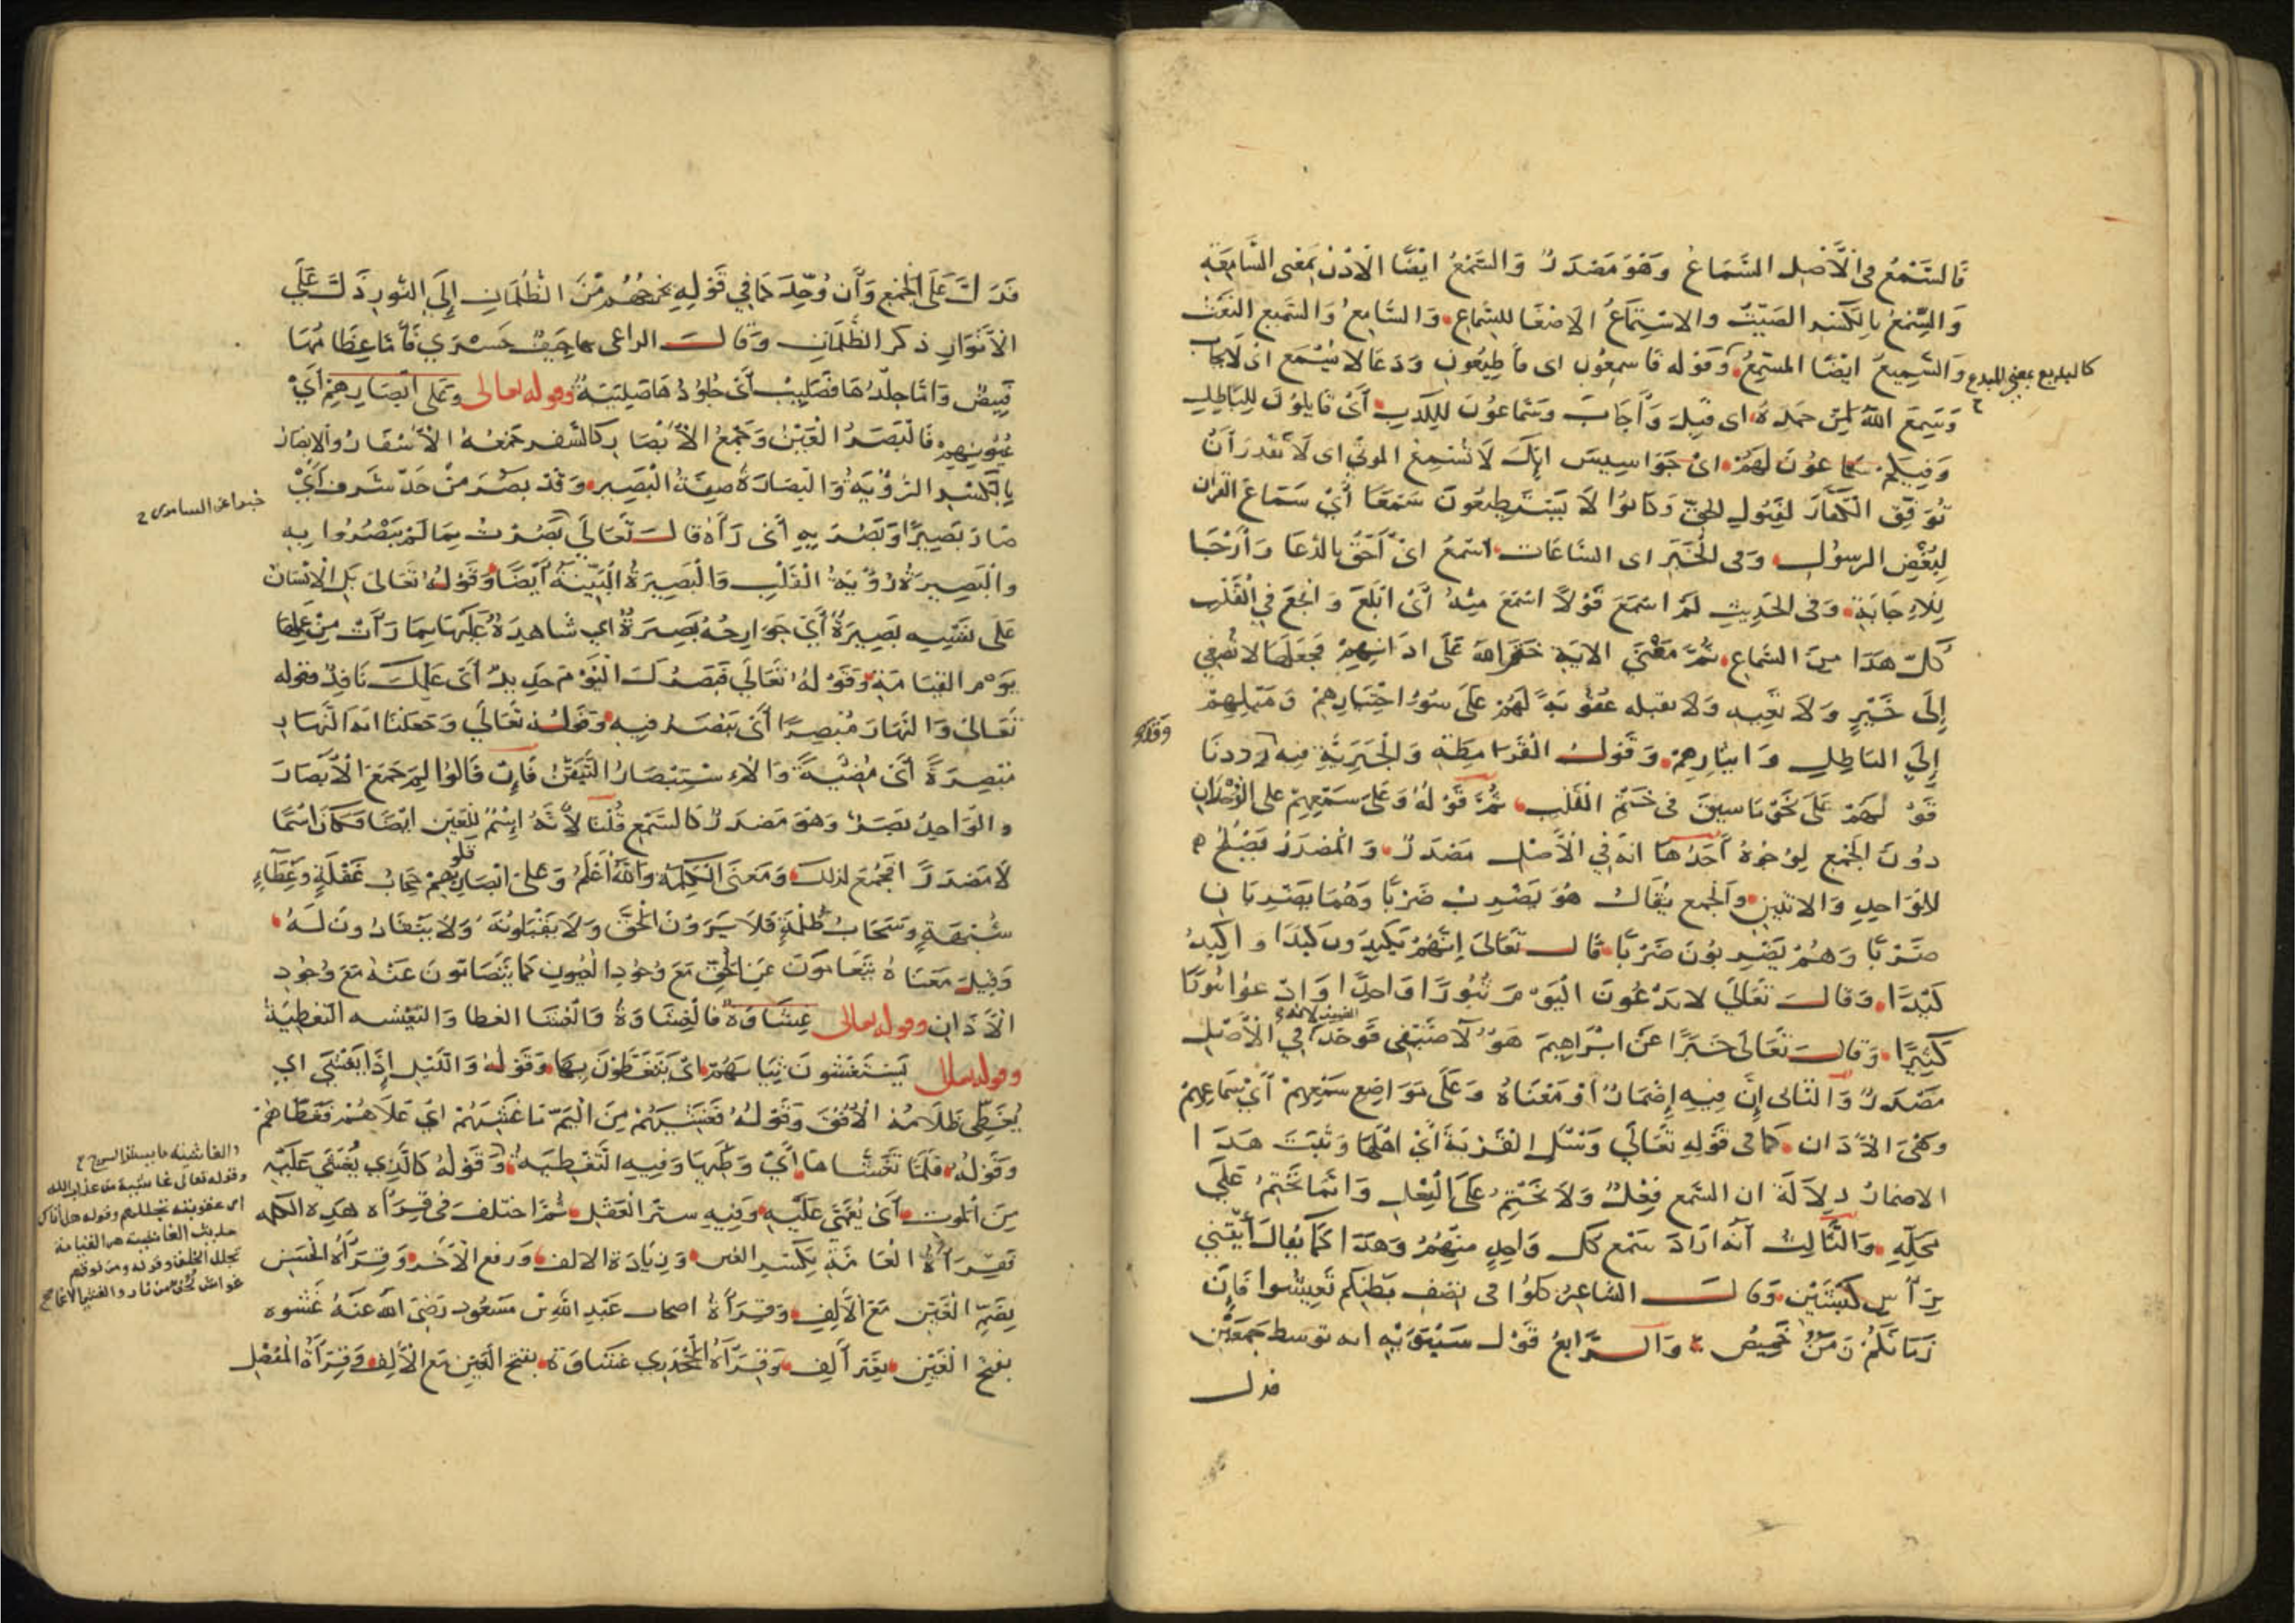 فَالسَّمْعُ فِي الْأَصْلِ السَّمَاعُ وَهُوَ مَصْدَرٌ وَالسَّمْعُ ايْضًا الْاذُنُ بِمَعْنَى السَّامِعَةِ
وَالسِّمْعُ بِالْكَسْرِ الصِّيتُ وَالاسْتِمَاعُ الاصْغَا للسَّمَاعِ وَالسَّامِعُ وَالسَّمِيعُ النَّعْتُ
وَالسَّمِيعُ ايْضًا المُسْتَمِعُ وَقَوْله فَاسمعُونِ اى فَأَطِيعُونِ وَدعَا لا يُسْمَع اى لَا يجاب
كالبديع بمعنى المبدع
وَسَمِعَ اللهُ لِمَنْ حَمِدَهُ اى قَبِلَ وَأَجَابَ وسَمَّاعُونَ لِلْكَذِبِ أَىْ قَابِلُونَ لِلْبَاطِلِ
وَفِيكُمْ سَمَّاعُونَ لَهُمْ اىْ جَوَاسِيسَ انَّكَ لَا تُسْمِعُ الموتى اى لَا تَقْدر أَنْ
تُوَفِّقَ الْكُفَّارَ لِقَبُولِ الحَقِّ وَكَانُوا لَا يَسْتَطِيعُونَ سَمْعًا أَىْ سَمَاعَ القران
لِبُغْضِ الرسُولِ وَفى الْخَبَرِ اى السَّاعَات اسْمَعُ اىْ أَحَقُّ بِالدُّعَا وَأَرْجَا
لِلْاِجَابَةِ وَفى الحَدِيثِ لَمْ اسْمَعَ قَوْلًا اسْمَعَ مِنْهُ أَىْ ابْلَغَ وَانْجَعَ فِي الْقَلْبِ
كُلّ هَذَا مِنَ السَّمَاعِ ثُمَّ مَعْنَى الايَةِ خَتَمَ اللهُ عَلَى اذَانِهِمْ فَجَعَلَهَا لَا تُصْغِي
إِلَى خَيْرٍ وَلَا تَعِيه وَلَا تقبله عُقُوبَةً لَهُمْ عَلَى سُوءِ اخْتِيَارِهِمْ وَمَيْلِهِمْ
إِلَى البَاطِلِ وَايثَارِهِمْ وَقَوْلُ الْقَرَامِطَةِ وَالْجَبَرِيَّةِ فِيهِ وَرددنَا
قَوْلَهُمْ عَلَى نَحْوِ مَا سبقَ فى خَتْمِ الْقَلْبِ ثُمَّ قَوْلُهُ وَعَلَى سَمْعِهِمْ على الوُحْدَانِ
دُونَ الْجَمْعِ لِوُجُوهٍ أَحَدُهَا انهُ فِي الْأَصْلِ مَصْدَرٌ وَالْمَصْدَرُ يَصْلُحُ
لِلْوَاحِدِ وَالاثنينِ وَالْجَمع يُقَالُ هُوَ يَضْرِبُ ضَرْبًا وَهُمَا يَضْرِبَانِ
ضَرْبًا وَهُمْ يَضْرِبُونَ ضَرْبًا قَالَ تَعَالَى إِنَّهُمْ يَكِيدُونَ كَيْدًا وَاكِيدُ
كَيْدًا وَقَالَ تَعَالَى لَا تَدْعُونَ الْيَوْمَ ثُبُورًا وَاحِدًا وَادْعُوا ثُبُورًا
كَثِيرًا وَقَالَ تَعَالَى خَبَرًا عَنْ ابْرَاهِيمَ هَؤُلَاءِ ضَيْفِى فَوَحَّدَ فِي الْأَصْلِ
الضيف لانه
مَصْدَرٌ وَالثَّانى إِنَّ فِيهِ إِضْمَارٌ اوْ مَعْنَاهُ وَعَلَى مَوَاضِعِ سَمْعِهِمْ أَىْ سَمَاعِهِمْ
وَهْىَ الْاذَان كَمَا فى قَوْلِهِ تَعَالَى وَسْئَلِ الْقَرْيَةَ أَىْ اهْلَهَا وَثَبَتَ هَذَا
الاضمارُ دِلَالَة ان السَّمع فِعْلٌ وَلَا يُخْتَمُ عَلَى الْفِعْلِ وَانَّمَا يُخْتَمُ عَلَى
مَحَلِّهِ وَالثَّالِثُ أَنَّهُ ارَادَ سَمْع كل وَاحِدٍ مِنْهُمْ وَهَذَا كَمَا يُقالُ أَيْتِنِي
بِرَأْسِ كَبْشَيْنِ وَقَالَ الشَّاعِرُ كلُوا فى نِصْفِ بَطْنِكُم تَعِيشُوا فَإِنَّ
زَمَانَكُمْ زَمَنٌ خَمِيصُ وَالرَّابِعُ قَوْلُ سَيْبَوَيْهِ انه توسط جَمْعَيْنِ
فدل
فَدَلَّ عَلَى الْجَمْعِ وَأَنْ وُحِّدَ كَمَا فِي قَوْلِهِ يُخْرِجُهُمْ مِنَ الظُّلُمَاتِ إِلَى النُّورِ دَلَّ عَلَى
الْأَنْوَارِ ذكر الظُّلُمَاتِ وَقَالَ الراعى بِهَا جِيَفُ حَسْرَى فَأَمَّا عِظَامُهَا
فَبِيضٌ وَامَّا جِلْدُهَا فَصَلِيبُ أَىْ جُلُودُهَا صَلِيبَةٌ وقوله تعالى وَعَلَى أَبْصَارِهِمْ أَىْ
عُيُونِهِمْ فَالْبَصَرُ الْعَيْنُ وَجَمْعُهُ الْأَبْصَار كَالسَّفَرِ جَمْعُهُ الْأَسْفَارُ وَالْابصَارُ
بِالْكَسْرِ الرُّؤْيَةُ وَالْبصَارَةُ صِفَةُ الْبَصِيرِ وَقَدْ بَصُرَ مِنْ حَدِّ شَرُفَ أَىْ
صَارَ بَصِيرًا وَبَصُرَ بِهِ أَىْ رَآهُ قَالَ تَعَالَى بَصُرْتُ بِمَا لَمْ يَبْصُرُوا بِهِ
خبرا عن السامرى
وَالْبَصِيرَةُ رُؤْيَةُ الْقَلْبِ وَالْبَصِيرَةُ الْبَيِّنَةُ أَيْضًا وَقَوْلُهُ تَعَالَى بَلِ الْاِنْسَانُ
عَلَى نَفْسِهِ بَصِيرَةٌ أَىْ جَوَارِحُهُ بَصِيرَةٌ اى شَاهِدَةٌ عَلَيْهَا بِمَا رَأَتْ مِنْ عَمَلِهَا
يَوْمَ القِيَامَةِ وَقَوْلُهُ تَعَالَى فَبَصَرُكَ الْيَوْمَ حَدِيدٌ أَىْ عِلْمُكَ نَافِذٌ وقوله
تَعَالَى وَالنَّهَارَ مُبْصِرًا أَىْ يُبْصَرُ فِيهِ وَقَوْلُهُ تَعَالَى وَجَعَلْنَا ايَةَ النَّهَارِ
مُبْصِرَةً أَىْ مُضِيْئَةً وَالْاِسْتِبْصَارُ التَّيَقُّنُ فَإِنْ قَالُوا لِمَ جَمَعَ الْأَبْصَارَ
وَالْوَاحِدُ بَصَرٌ وَهُوَ مَصْدَرٌ كَالسَّمْعِ قُلْنَا لِأَنَّهُ إِسْمٌ لِلْعَيْنِ ايْضًا فَكَانَ اسْمًا
لَا مَصْدَرًا فَجُمِعَ لذلك وَمَعْنَى الْكَلِمَةِ وَاللهُ أَعْلَمُ وَعَلَى ابْصَارِ قُلُوبِهِمْ حِجَابُ غَفْلَةٍ وَغِطَاءِ
شُبْهَةٍ وَسَحَابُ ظُلْمَةٍ فَلَا يَرَوْنَ الْحَقَّ وَلَا يَقْبَلُونَهُ وَلَا يَنْقَادُونَ لَهُ
وَقِيلَ مَعْنَاهُ يَتَعَامَوْنَ عَنِ الْحَقِّ مَعَ وُجُودِ الْعُيُونِ كَمَا يَتَصَامَّونَ عَنْهُ مَعَ وُجُودِ
الْاذَانِ وقوله تعالى غِشَاوَةٌ فَالْغِشَاوَةُ وَالْغِشَا الغطا وَالتَّغْشِيَه التَّغْطِيَةُ
وقوله تعالى يَسْتَغْشُونَ ثِيَابَهُمْ اىْ يَتَغَطَّوْنَ بِهَا وَقَوْلُهُ وَاللَّيْلِ إِذَا يَغْشَى اى
يُغَطِّى ظَلَامُهُ الْاُفُقَ وَقَوْلُهُ فَغَشِيَهُمْ مِنَ الْيَمِّ مَا غَشِيَهُمْ اىْ عَلَاهُمْ فَغَطَّاهُمْ
وَقَوْلُهُ فَلَمَّا تَغَشَّاهَا أَىْ وَطِيَهَا وَفِيهِ التَّغْطِيَةُ وَقَوْلُهُ كَالَّذِى يُغْشَى عَلَيْهِ
مِنَ الْمَوْتِ أَىْ يُغْمَى عَلَيْهِ وَفِيهِ ستر الْعَقْلِ ثُمَّ اختلفَ فى قِرَأَةِ هَذِهِ الكلمه
فَقِرَأَةُ الْعَامَّةِ بِكَسْرِ الغين وَزِيَادَة الالف وَرفع الْاَخر وَقِرَأَةُ الْحَسَن
بِضَمِّ الْغَيْنِ مَعَ الْاَلِفِ وَقِرَأَةُ اصحاب عَبْدِ اللهِ بْنِ مَسْعُودٍ رَضِىَ اللهُ عَنْهُ غَشْوه
بفتح الْغَيْنِ بِغَيْرِ أَلِفٍ وَقِرَأَةُ الْجَحْدَرِى غَشَاوَة بفتح الْغَيْنِ مَعَ الْأَلِفِ وَقِرَأَةُ الْمُفَضَّلِ
وقوله تعالى غاشية من عذاب الله
اى عقوبته تجللهم وقوله هل أتاك
حديث الغاشية هى القيامة
تجلل الخلق وقوله ومن فوقهم